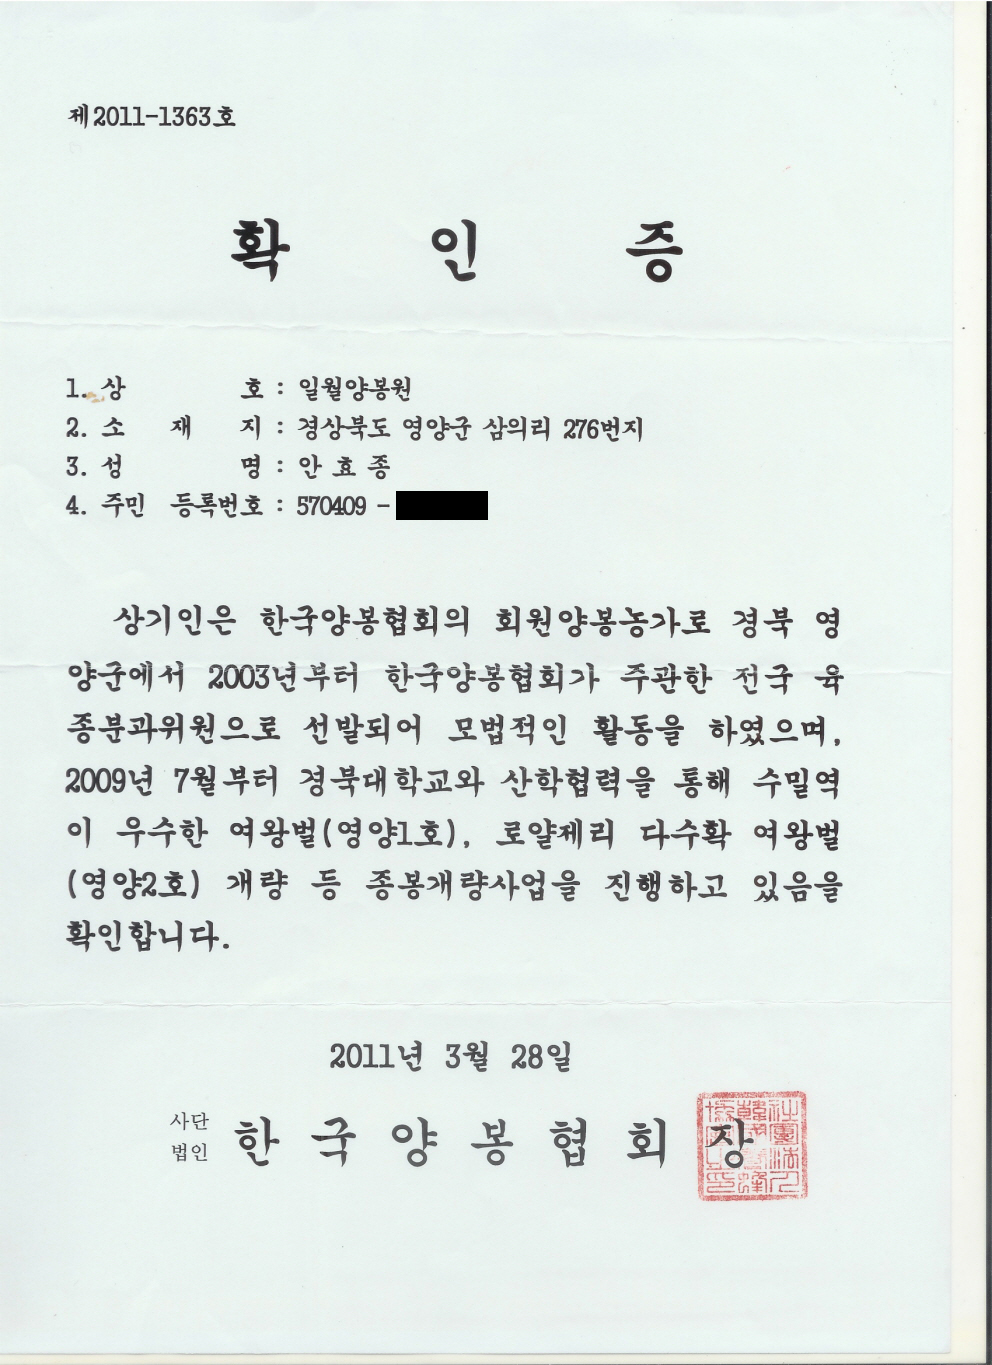 제2011-1363호
확 인 증
1. 상 호 : 일월양봉원
2. 소 재 지 : 경상북도 영양군 삼의리 276번지
3. 성 명 : 안 효 종
4. 주민 등록번호 : 570409 -
상기인은 한국양봉협회의 회원양봉농가로 경북 영
양군에서 2003년부터 한국양봉협회가 주관한 전국 육
종분과위원으로 선발되어 모법적인 활동을 하였으며,
2009년 7월부터 경북대학교와 산학협력을 통해 수밀역
이 우수한 여왕벌(영양1호), 로얄제리 다수확 여왕벌
(영양2호) 개량 등 종봉개량사업을 진행하고 있음을
확인합니다.
2011년 3월 28일
사단
법인 한 국 양 봉 협 회 장